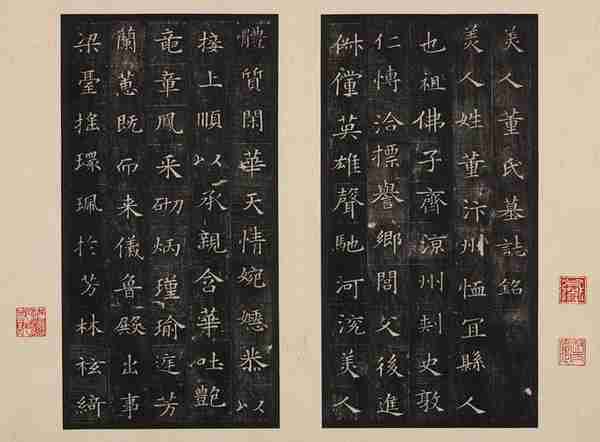 美人董氏墓誌銘
美人姓董汴州恤宜縣人
也祖佛子齊涼州刾史敦
仁博洽摽譽鄉閭父後進
俶儻英雄聲馳河渷美人
體質閑華天情婉嫕恭以
接上順以承親含華吐艷
竜章鳳采砌炳瑾瑜庭芳
蘭蕙既而来儀魯殿出事
梁臺搖環珮於芳林袨綺